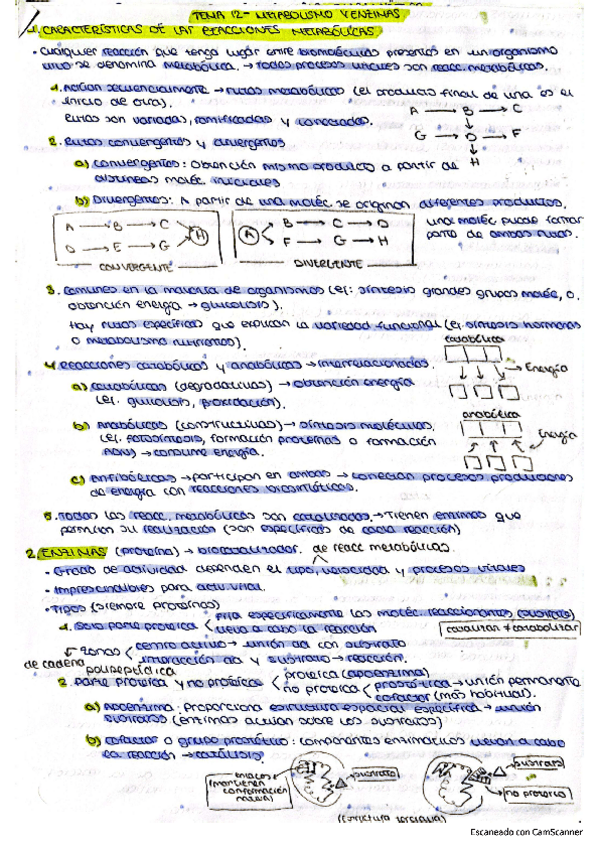 TEMA 12- METABOLISMO Y ENZIMAS
1. CARACTERÍSTICAS DE LAS REACCIONES METABÓLICAS.
· Cualquier reacción que tenga lugar entre biomoléculas presentes en un organismo
vivo se denomina metabólica. → todos procesos vitales son reacc. metabólicas.
1. Actúan secuencialmente → rutas metabólicas (el producto final de una es el
inicio de otra).
Rutas son variadas, ramificadas y conectadas.
A → B → C
G → D → F
H
2. Rutas convergentes y divergentes
a) Convergentes: obtención mismo producto a partir de
distintas moléc. iniciales
b) Divergentes: A partir de una moléc se originan diferentes productos.
A → B → C
D → E → G
H
CONVERGENTE
A
B → C → D
F → G → H
DIVERGENTE
una moléc puede formar
parte de ambas rutas.
3. Comunes en la mayoría de organismos (ej: síntesis grandes grupos moléc, o
obtención energía → glucolisis).
Hay rutas específicas que explican la variedad funcional (ej. síntesis hormonas
o metabolismo nutrientes).
4. Reacciones catabólicas y anabólicas → interrelacionadas.
a) catabólicas (degradativas) → obtención energía
(ej. glucolisis, β-oxidación).
catabólica
Energía
b) Anabólicas (constructivas) → síntesis moléculas
(ej. fotosíntesis, formación proteínas o formación
ADN) → consume energía.
anabólica
Energía
c) Anfibólicas → participan en ambas → conectan procesos productores
de energía con reacciones biosintéticas.
5. Todas las reacc. metabólicas son catalizadas. → Tienen enzimas que
permiten su realización (son específicas de cada reacción)
2. ENZIMAS (proteína) → biocatalizador de reacc metabólicas.
· Grado de actividad dependen el tipo, velocidad y procesos vitales
· Imprescindibles para activ. vital.
· Tipos (siempre proteínas)
1. Solo parte proteica < fija específicamente las moléc reaccionantes (sustrato)
lleva a cabo la reacción
catalizar ≠ catabolizar
zonas < centro activo → unión aa con sustrato
interacción aa y sustrato → reacción.
de cadena
polipeptídica
2. Parte proteica y no proteica < proteica (apoenzima)
no proteica < prostética → unión permanente
cofactor (más habitual).
a) Apoenzima: Proporciona estructura espacial específica → unión
sustratos (enzimas actúan sobre los sustratos)
b) Cofactor o grupo prostético: componentes enzimáticos llevan a cabo
la reacción → catálisis.
enlaces
(mantienen
conformación
sustrato
sustrato
no proteica
(estructura terciaria)
Escaneado con CamScanner